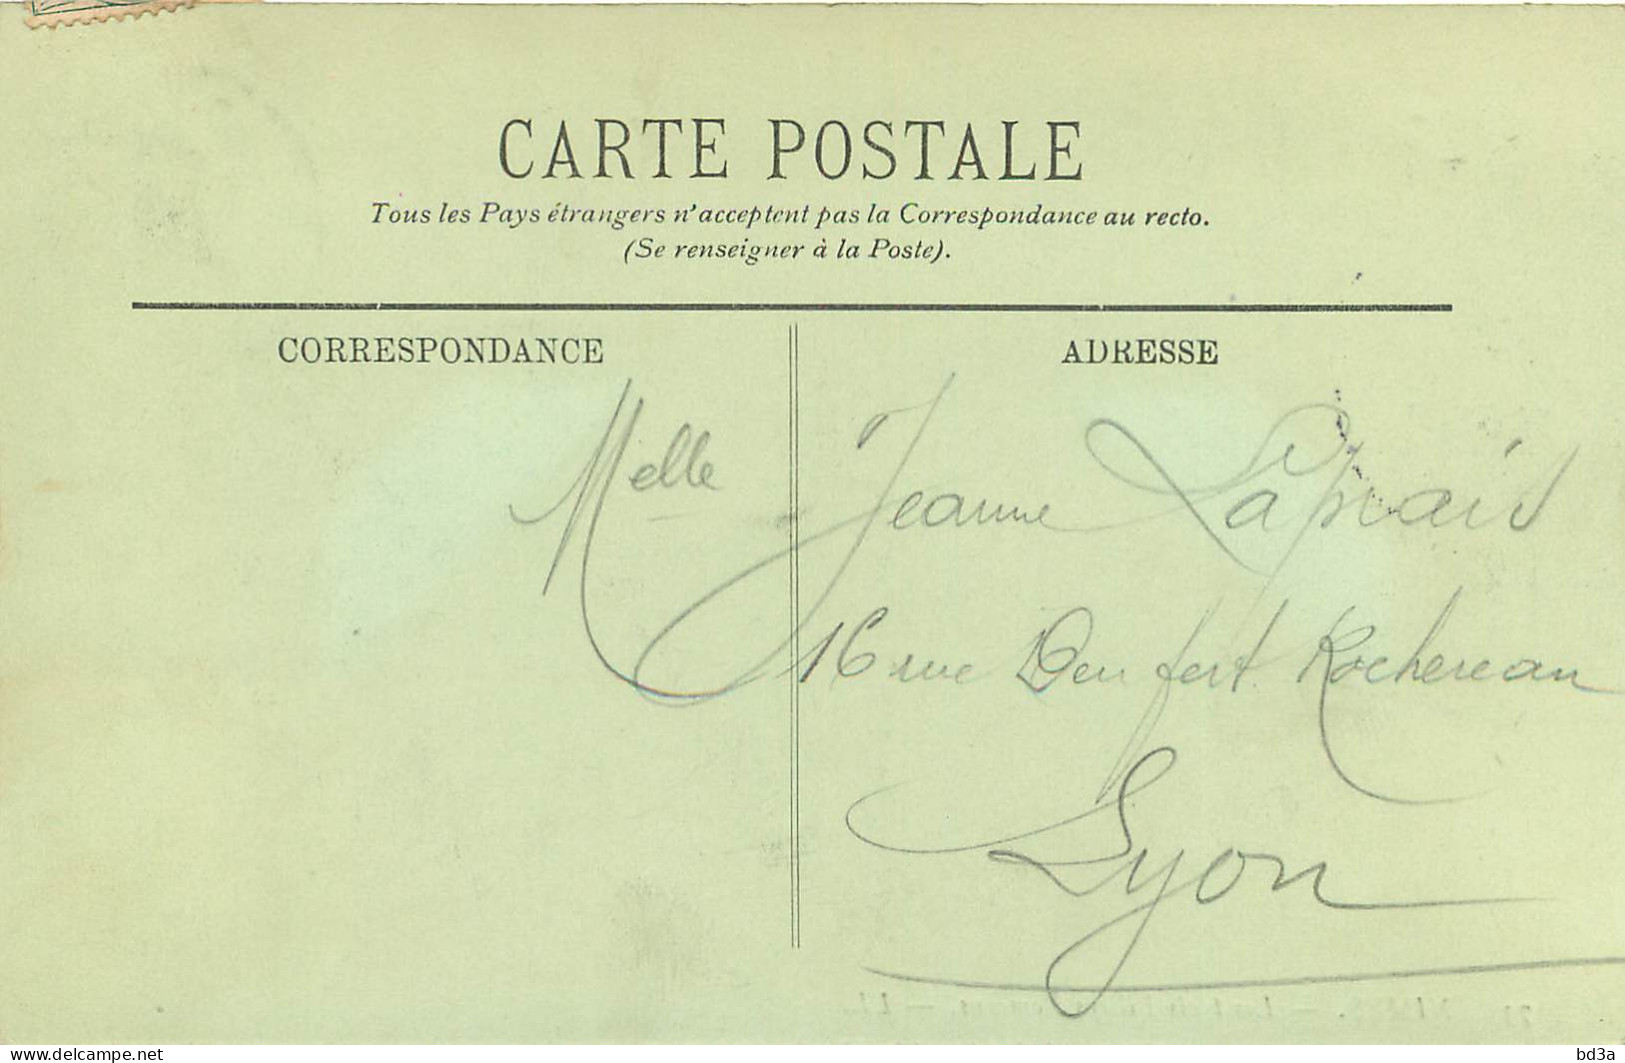 CARTE POSTALE
Tous les Pays étrangers n'acceptent pas la Correspondance au recto.
(Se renseigner à la Poste).
CORRESPONDANCE
ADRESSE
Melle Jeanne
16 rue Denfert Rochereau
Lyon
delcampe.net
bd3a